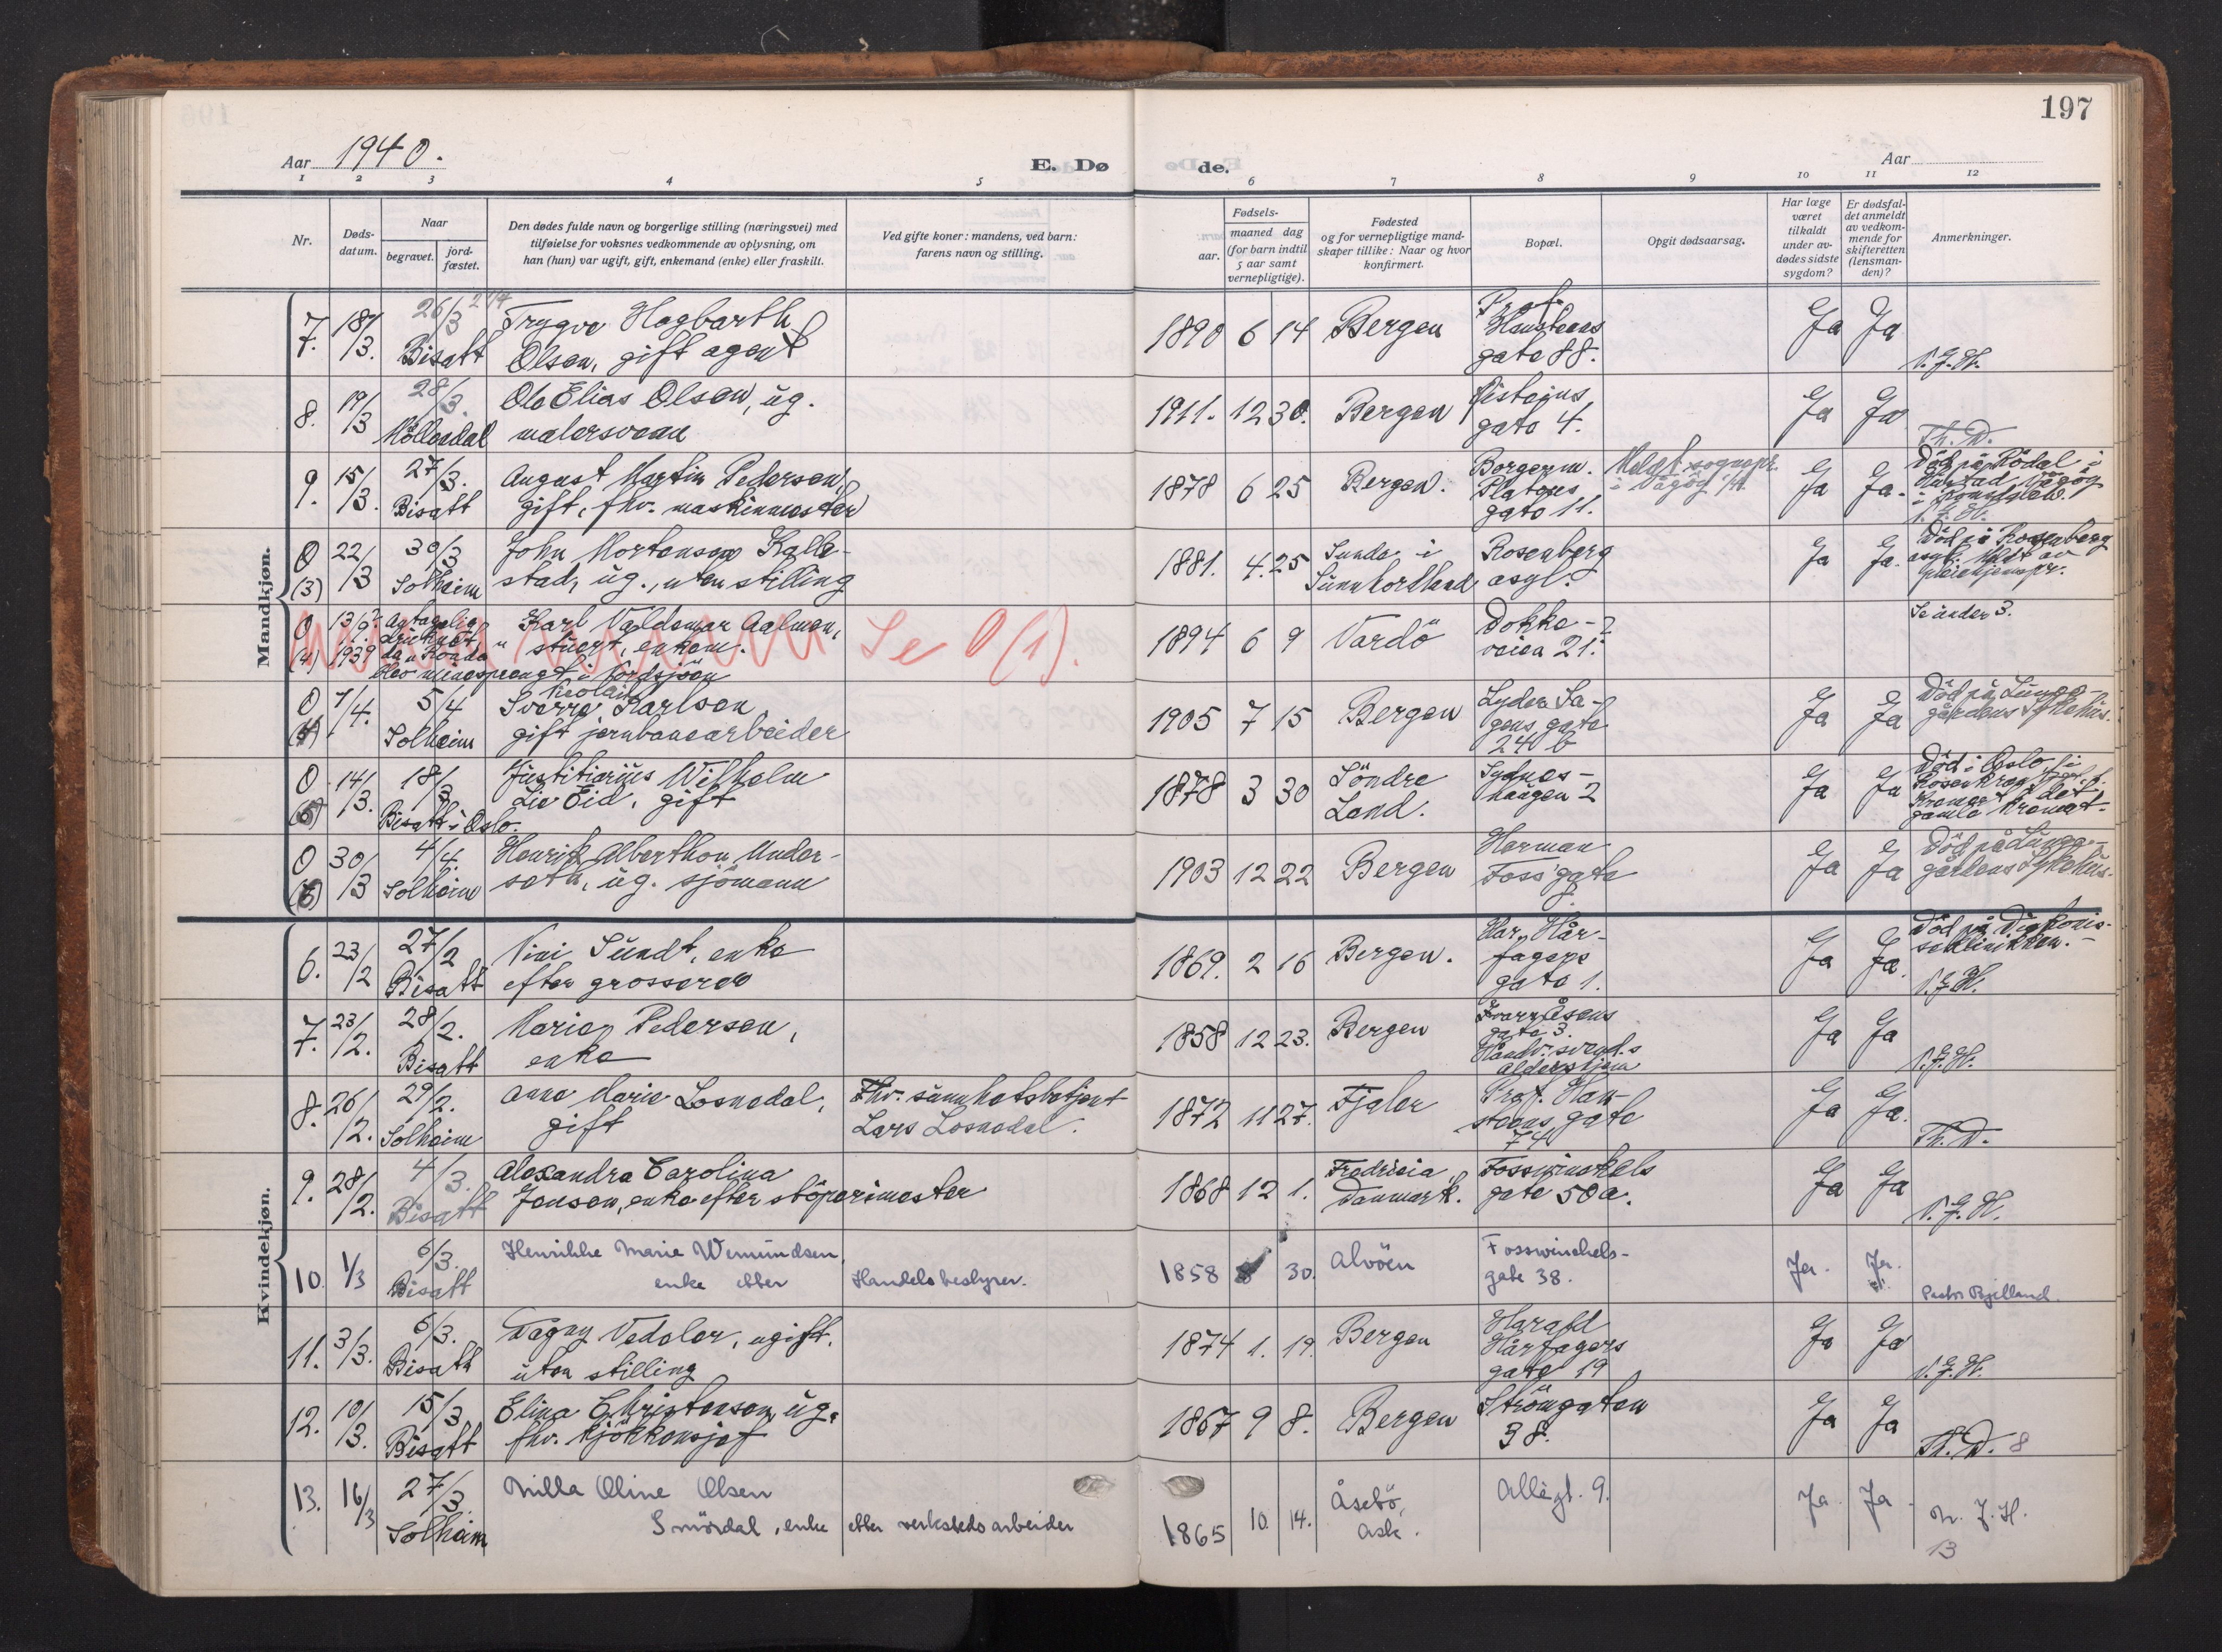 197
Aar 1940.
E. Dø
de.
Aar
1 2 3 4 5 6 7 8 9 10 11 12
Nr.
Døds-
datum.
Naar
begravet.
jord-
fæstet.
Den dødes fulde navn og borgerlige stilling (næringsvei) med
tilføielse for voksnes vedkommende av oplysning, om
han (hun) var ugift, gift, enkemand (enke) eller fraskilt.
Ved gifte koner: mandens, ved barn:
farens navn og stilling.
Fødsels-
aar.
maaned dag
(for barn indtil
5 aar samt
vernepligtige).
Fødested
og for vernepligtige mand-
skaper tillike: Naar og hvor
konfirmert.
Bopæl.
Opgit dødsaarsag.
Har læge
været
tilkaldt
under av-
dødes sidste
sygdom?
Er dødsfal-
det anmeldt
av vedkom-
mende for
skifteretten
(lensman-
den)?
Anmerkninger.
Mandkjøn.
7. 18/3. 26/3 2/4 Bisatt
Trygve Hagbarth
Olsen, gift agent
1890 6 14 Bergen
Prof.
Hansteens
gate 88.
Ja Ja
N.J.H.
8. 19/3 28/3. Möllendal
Ole Elias Olsen, ug.
malersvenn
1911. 12 30. Bergen
gate 4.
Ja Ja
Th. D.
9. 15/3. 27/3. Bisatt
August Martin Pedersen,
gift, fhv. maskinmester
1878 6 25 Bergen.
Borgerm.
Platous
gate 11.
Meldt sognepr.
i Vågöy
Ja Ja.
Död på Rödal i
Vågöy
i Romsdalen.
N.J.H.
0 (3) 22/3 30/3 Solheim
John Mortensen Kalle-
stad, ug., uten stilling
1881. 4. 25
Sunde i
Sunnhordland
Rosenberg
asyl.
Ja Ja.
Död på Rosenberg
asyl. Meldt av
pleiehjemspr.
0 (4) 13/ 1939
Antagelig
druknet
da "Ronda"
blev minesprengt i Nordsjöen
Karl Valdemar Aalmen,
stuert, enkem.
Se 0 (1).
1894 6 9 Vardö
Dokke-
veien 21.
Se under 3.
0 (4) 1/4. 5/4 Solheim
Nicolai
Sverre Karlsen
gift jernbanearbeider
1905 7 15 Bergen
Lyder Sa-
gens gate
24 b
Ja Ja
Död på Lunge-
gårdens Sykehus.
0 (5) 14/3. 18/3 Bisatt i Oslo.
Justitiarius Wilhelm
Lie Eid, gift
1878 3 30
Söndre
Land.
Sydnes-
haugen 2
Ja Ja
Död i Oslo i
Kremert i det
gamle Kremat.
0 (6) 30/3 4/4. Solheim
Henrik Alberthon Under-
seth, ug. sjömann
1903 12 22 Bergen
Herman
Foss' gate
Ja Ja
Död på Lunge-
gårdens Sykehus.
Kvindekjøn.
6. 23/2 27/2 Bisatt
Nini Sundt, enke
efter grosserer
1869. 2 16 Bergen.
Har. Hår-
fagers
gate 1.
Ja Ja.
Död på Diakonis-
seklinikken.
N.J.H.
7. 23/2. 28/2. Bisatt
Marie Pedersen,
enke
1858 12 23. Bergen
Ivar Åsens
gate 3.
Håndv.svend.s
aldershjem
Ja Ja
N.J.H.
8. 26/2. 29/2. Solheim
Anne Marie Losnedal,
gift
Fhv. sunnhetsbetjent
Lars Losnedal.
1872 11 27. Fjaler
Prof. Han-
steens gate
74
Ja Ja.
Th. D.
9. 28/2. 4/3. Bisatt
Alexandra Carolina
Jensen, enke efter stöperimester
1868 12 1.
Fredricia
Danmark.
Fosswinckels
gate 50a.
Ja Ja
N.J.H.
10. 1/3 6/3. Bisatt
Henrikke Marie Wemundsen,
enke etter Handelsbestyrer.
1858 8 30. Alvöen
Fosswinckels-
gate 38.
Ja. Ja.
Pastor Bjelland.
11. 3/3. 6/3. Bisatt
Dagny Vedeler, ugift,
uten stilling
1874 1. 19. Bergen
Harald
Hårfagers
gate 19
Ja Ja
N.J.H.
12. 10/3. 15/3 Bisatt
Elina Christensen, ug.
fhv. kjökkensjef
1867 9 8. Bergen
Strömgaten
38.
Ja Ja
Th. D. 8
13. 16/3 27/3. Solheim
Milla Oline Olsen
Smördal, enke etter verkstedsarbeider
1865 10. 14.
Åsebö,
Ask.
Allégt. 9.
Ja Ja
N. J. H.
13